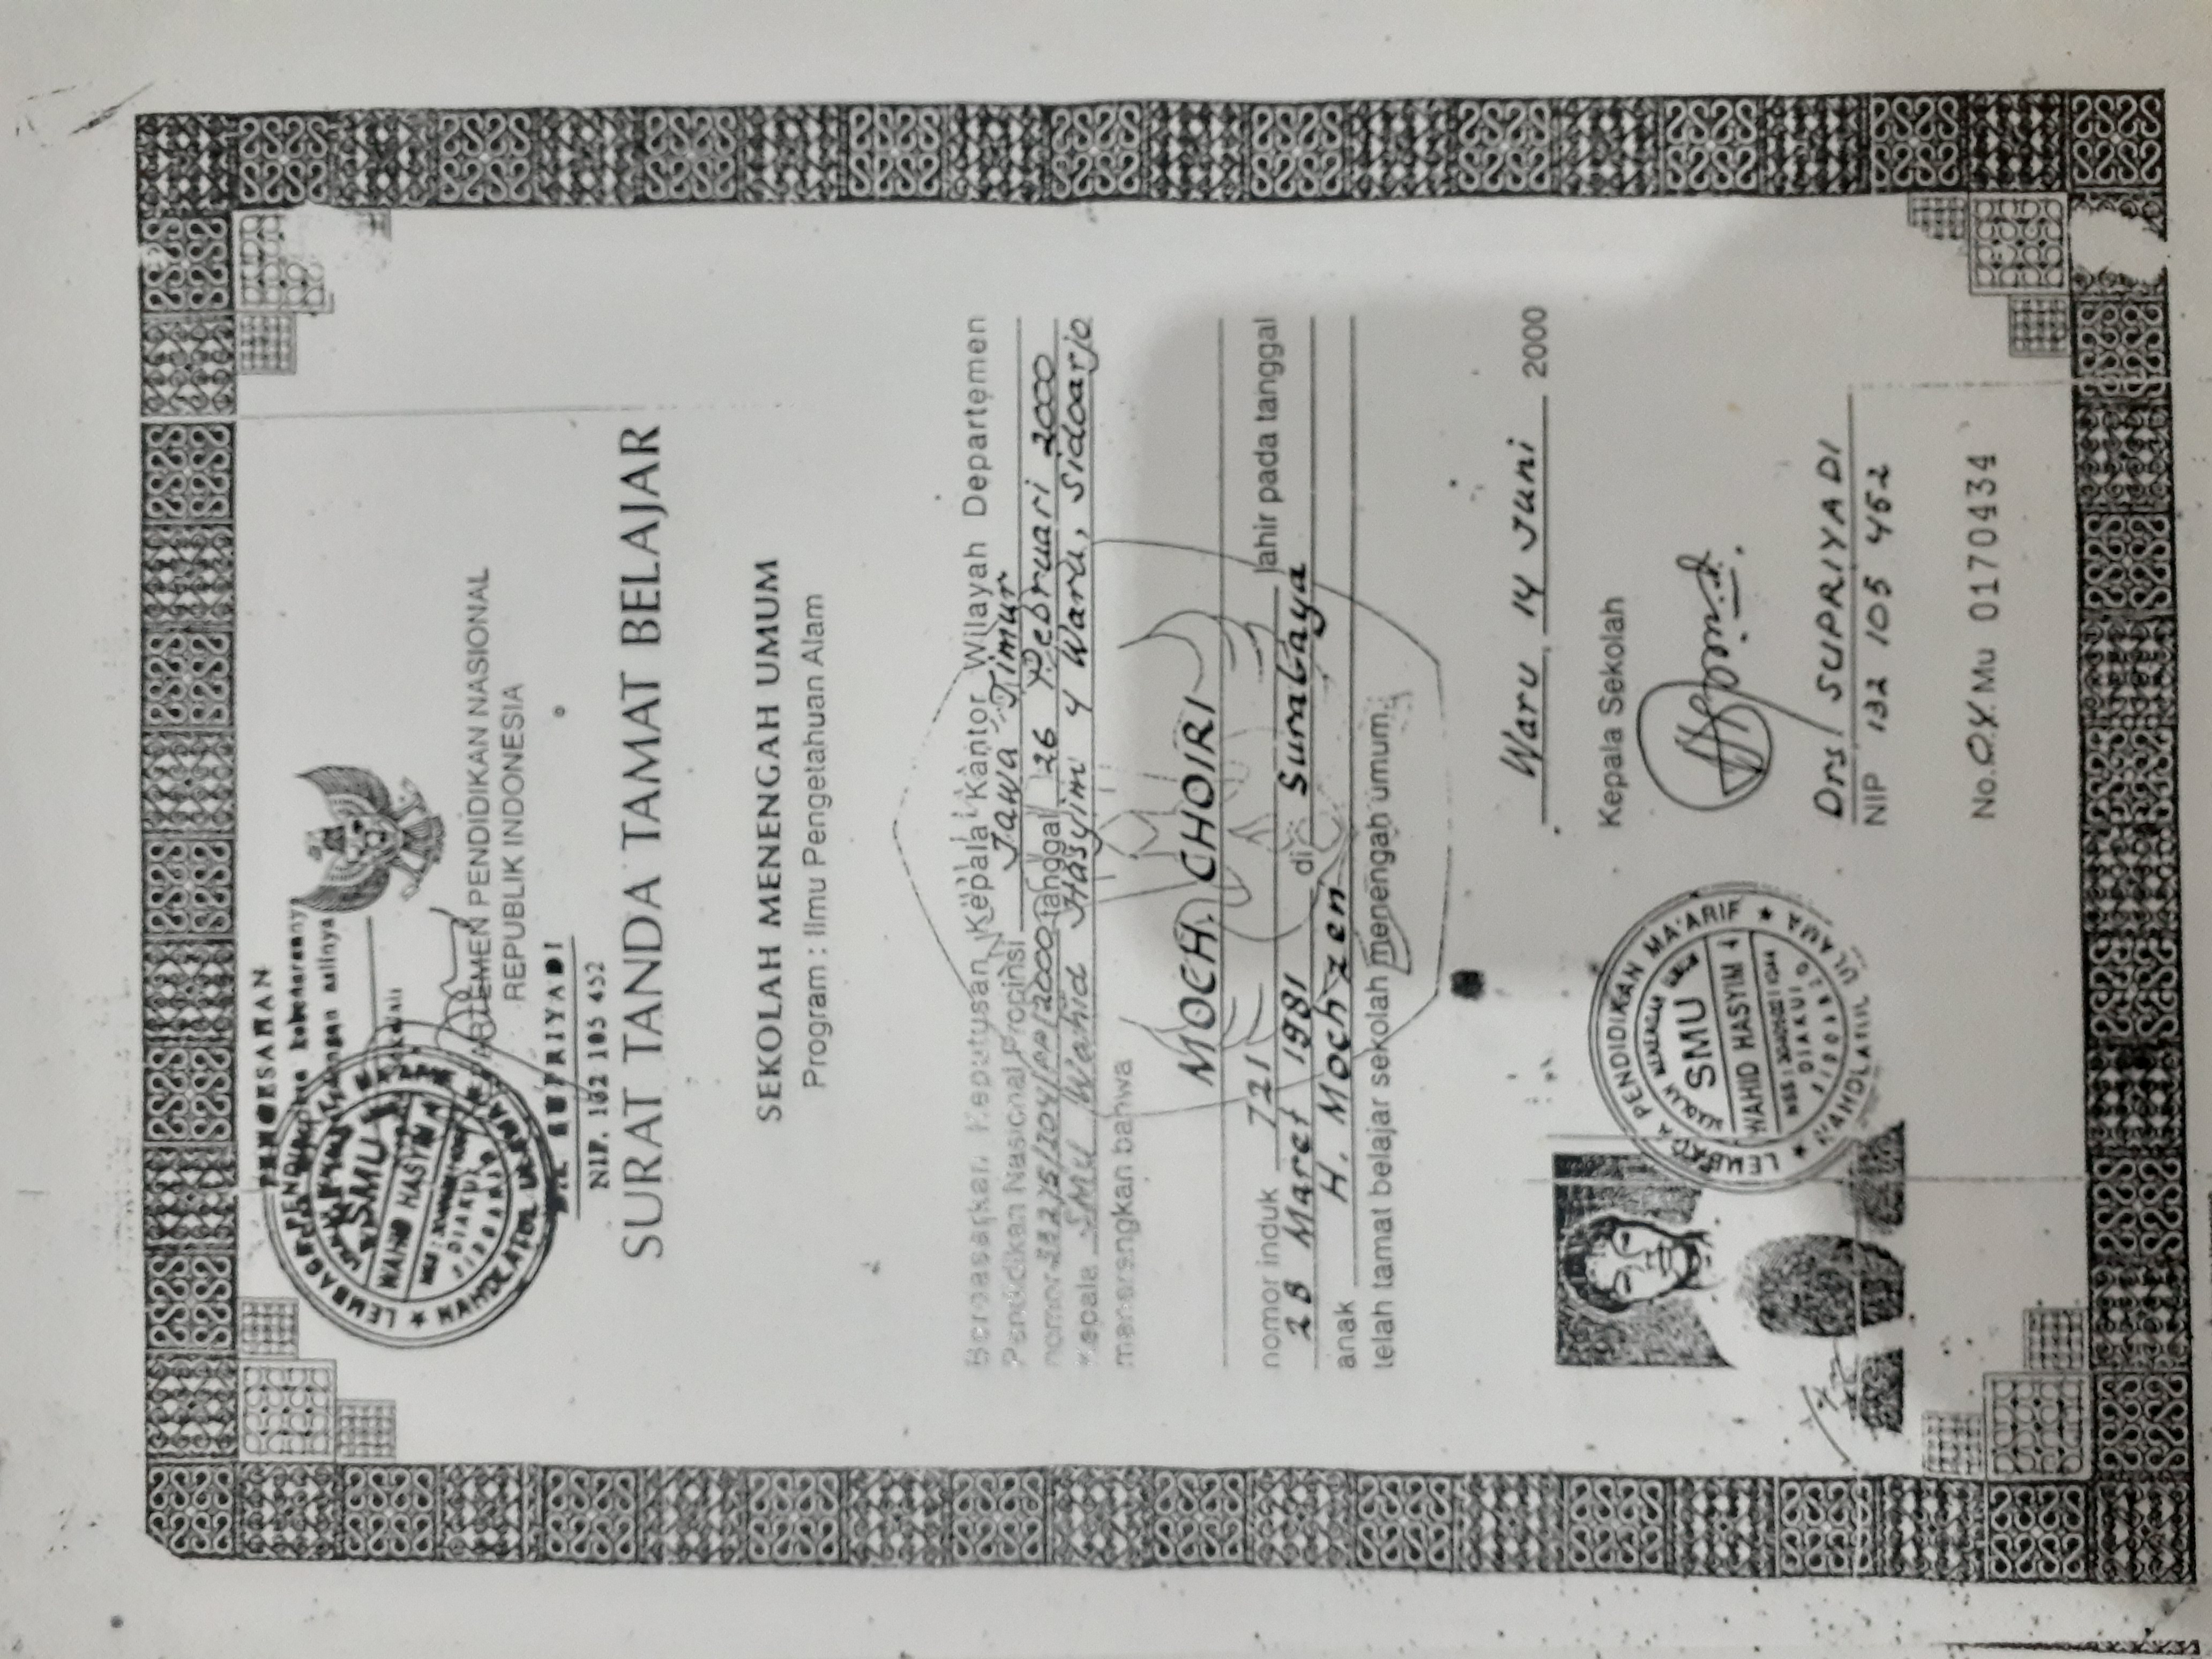 PENGESAHAN
kebenarannya
dengan aslinya
LEMBAGA PENDIDIKAN MA'ARIF
SMU
WAHID HASYIM 4
DIAKUI
SIDOARJO
NAHDLATUL ULAMA
DEPARTEMEN PENDIDIKAN NASIONAL
REPUBLIK INDONESIA
SUPRIYADI
NIP. 132 105 452
SURAT TANDA TAMAT BELAJAR
SEKOLAH MENENGAH UMUM
Program : Ilmu Pengetahuan Alam
Berdasarkan Keputusan Kepala Kantor Wilayah Departemen
Pendidikan Nasional Propinsi Jawa Timur
nomor tanggal 26 Pebruari 2000
Kepala SMU Wahid Hasyim 4 Waru, Sidoarjo
menerangkan bahwa
MOCH. CHOIRI
nomor induk 721 lahir pada tanggal
28 Maret 1981 di Surabaya
anak H. Moch zen
telah tamat belajar sekolah menengah umum.
Waru, 14 Juni 2000
Kepala Sekolah
LEMBAGA PENDIDIKAN MA'ARIF
SEKOLAH MENENGAH UMUM
SMU
WAHID HASYIM 4
DIAKUI
SIDOARJO
NAHDLATUL ULAMA
Drs SUPRIYADI
NIP 132 105 452
No. 04 Mu 0170434